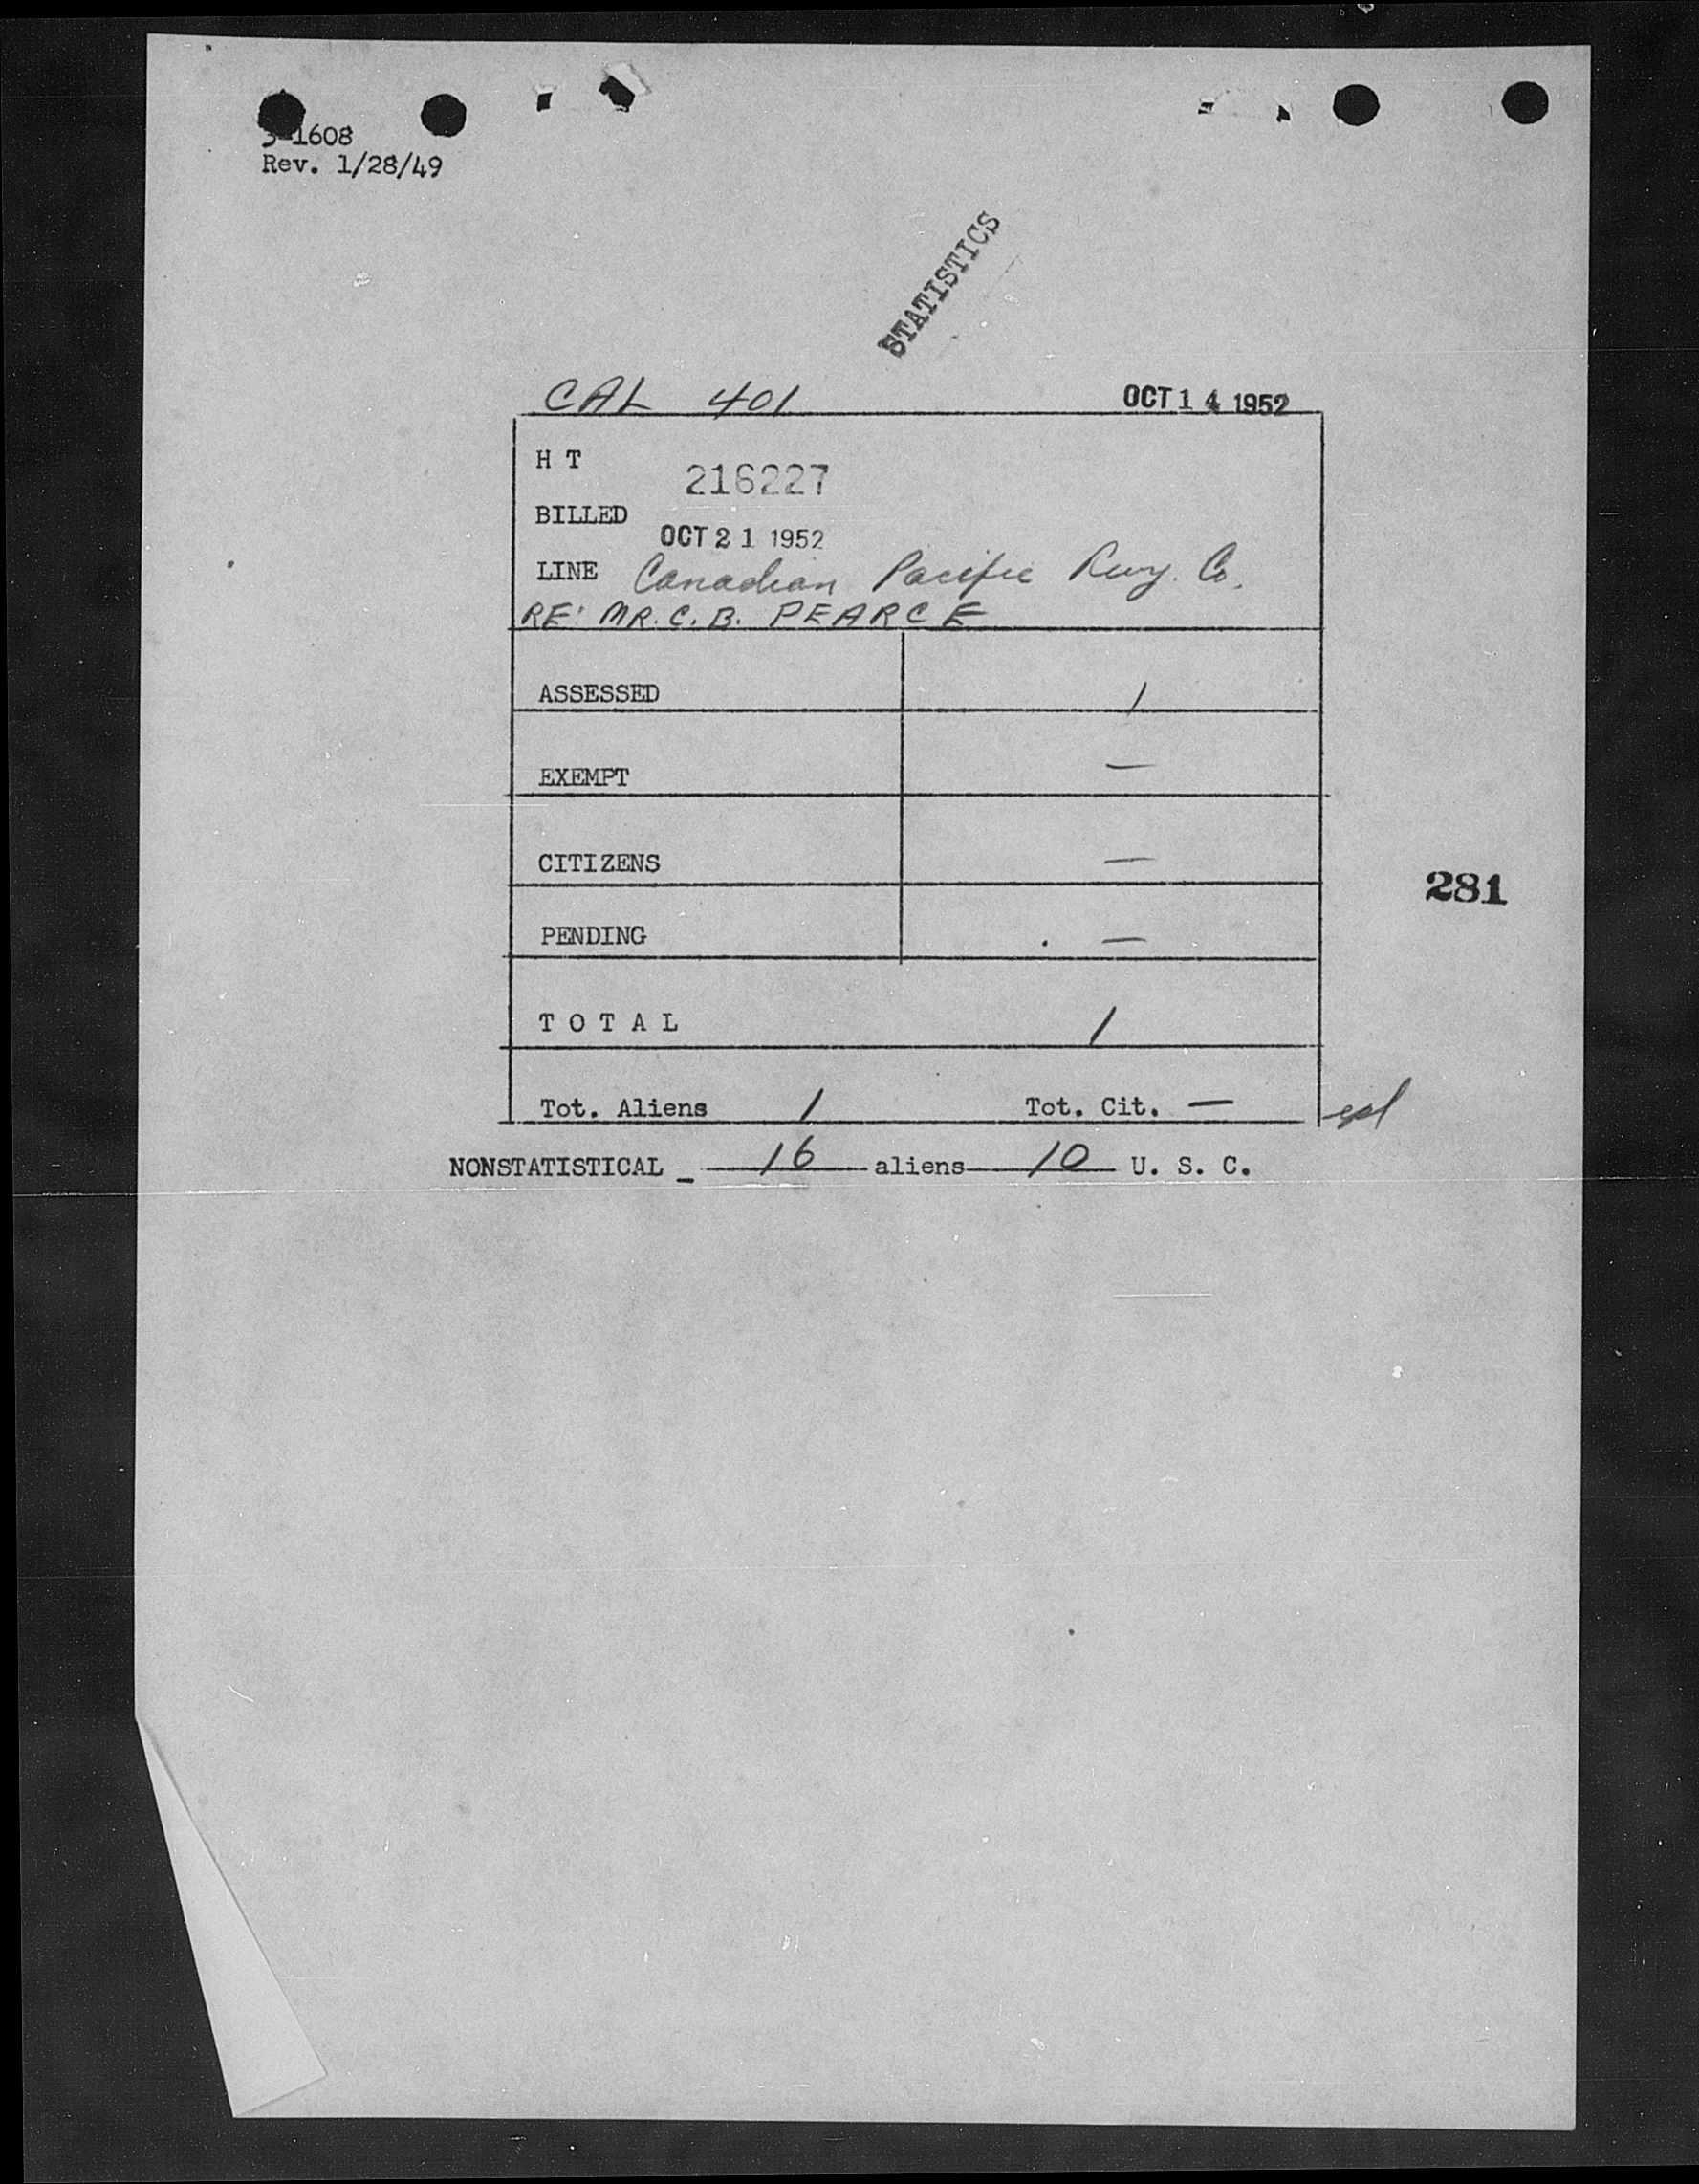 3-1608
Rev. 1/28/49
STATISTICS
CAL 401 OCT 14 1952
H T 216227
BILLED OCT 21 1952
LINE Canadian Pacific Rwy. Co.
RE: MR. C. B. PEARCE
ASSESSED 1
EXEMPT —
CITIZENS —
281
PENDING —
T O T A L 1
Tot. Aliens 1 Tot. Cit. —
NONSTATISTICAL 16 aliens 10 U. S. C.